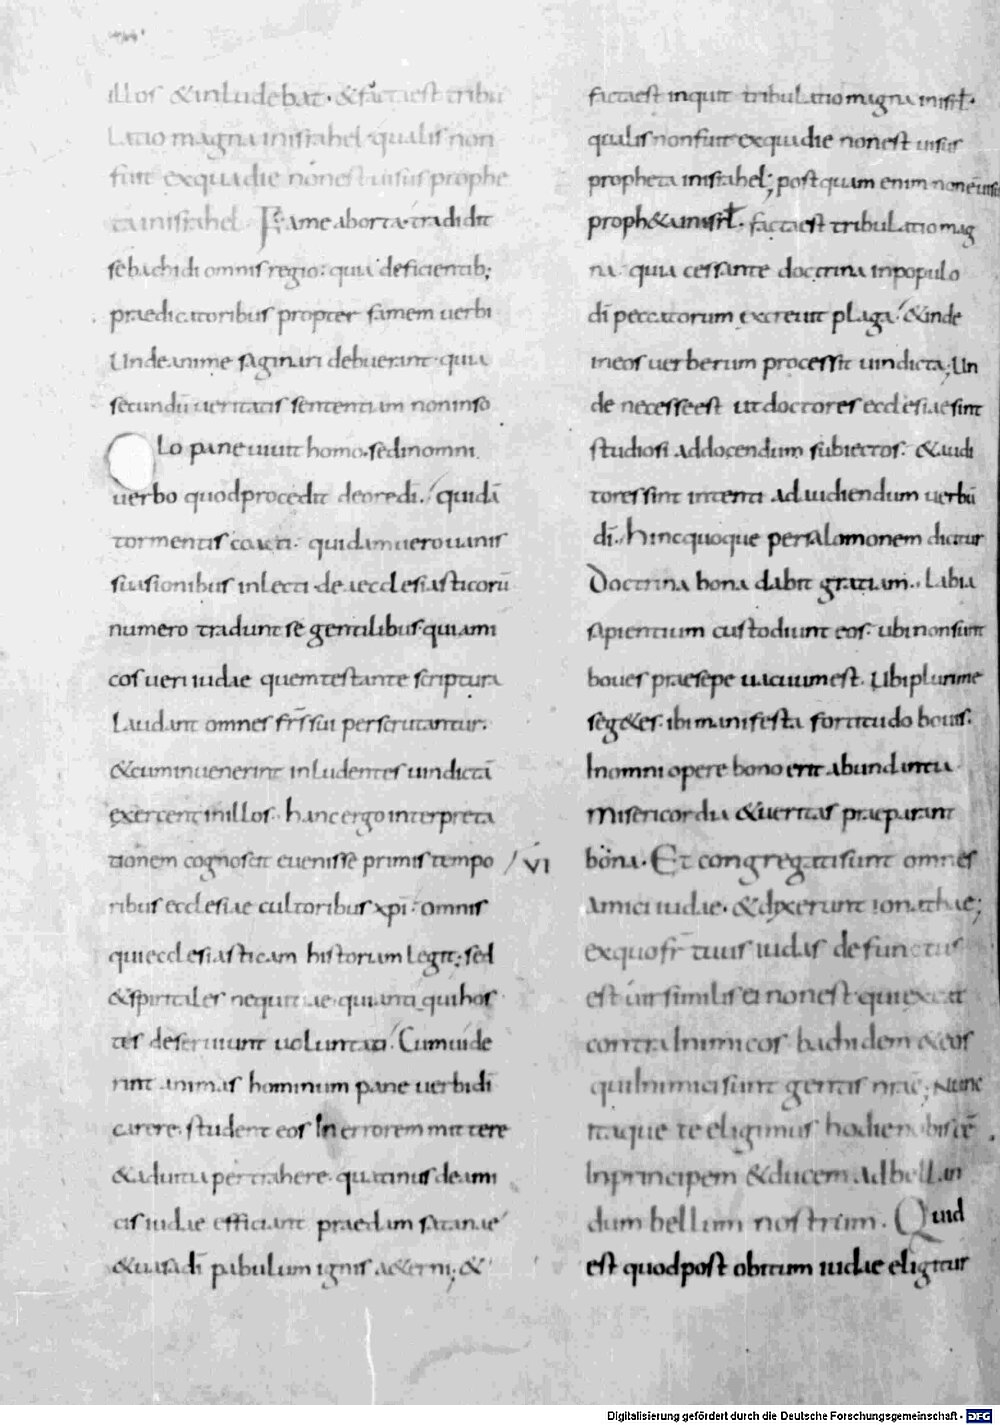 illos & inludebat. & facta est tribu
latio magna in israhel qualis non
fuit ex qua die non est uisus prophe
ta in israhel. Fame aborta tradidit
se bachidi omnis regio. quia deficientib;
praedicatoribus propter famem uerbi
Unde animę saginari debuerant. quia
secundū ueritatis sententiam non in so
lo pane uiuit homo. sed in omni
uerbo quod procedit de ore dī. quidā
tormentis coacti. quidam uero uanis
suasionibus inlecti. de aecclesiasticorū
numero tradunt se gentilibus. qui ami
cos ueri iudae quem testante scriptura
laudant omnes frs̄ sui perscrutantur.
& cum inuenerint inludentes uindictā
exercent in illos. hanc ergo interpreta
tionem cognoscit euenisse primis tempo
ribus ecclesiae cultoribus xpī. omnis
qui ecclesiasticam historiam legit; sed
& spiritales nequitiae. quia
tes deseruiunt uoluntati. Cum uide
rint animas hominum pane uerbi dī
carere. student eos In errorem mittere
& ad uitia pertrahere. quatinus de ami
cis iudae efficiant praedam satanae
& uasa dī pabulum ignis a&erni; &
facta est inquit tribulatio magna in isrł.
qualis non fuit ex qua die non est uisus
propheta in israhel; postquam enim non ē uisus
proph&a in isrł. facta est tribulatio mag
na. quia cessante doctrina in populo
dī peccatorum excreuit plaga. & inde
in eos uerberum processit uindicta; Un
de necesse est ut doctores ecclesiae sint
studiosi ad docendum subiectos. & audi
tores sint intenti ad audiendum uerbū
dī. hinc quoque per salomonem dicitur
Doctrina bona dabit gratiam. Labia
sapientium custodiunt eos. ubi non sunt
boues praesepe uacuum est. Ubi plurimę
seg&es. ibi manifesta fortitudo bouis.
In omni opere bono erit abundantia
Misericordia & ueritas praeparant
bona. Et congregati sunt omnes
VI
amici iudae. & dixerunt ionathae;
ex quo fr̄ tuus iudas defunctus
est uir similis ei non est. qui exeat
contra Inimicos bachidem & eos
qui Inimici sunt gentis nr̄ae; Nunc
itaque te eligimus hodie nobis ēē
In principem & ducem ad bellan
dum bellum nostrum. Quid
est quod post obitum iudae eligitur
Digitalisierung gefördert durch die Deutsche Forschungsgemeinschaft - DFG